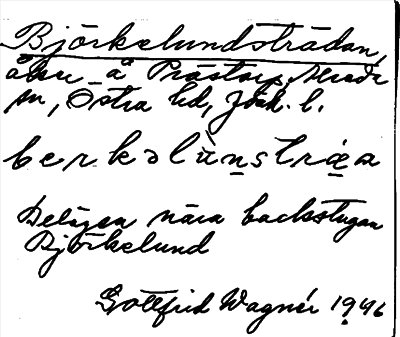 Björkelundsträdan,
åker å Prästorp, Nässjö
sn, Östra hd, Jönk. l.
berkəlùnstræa
Belägen nära backstugan
Björkelund
Gottfrid Wagnér 1946